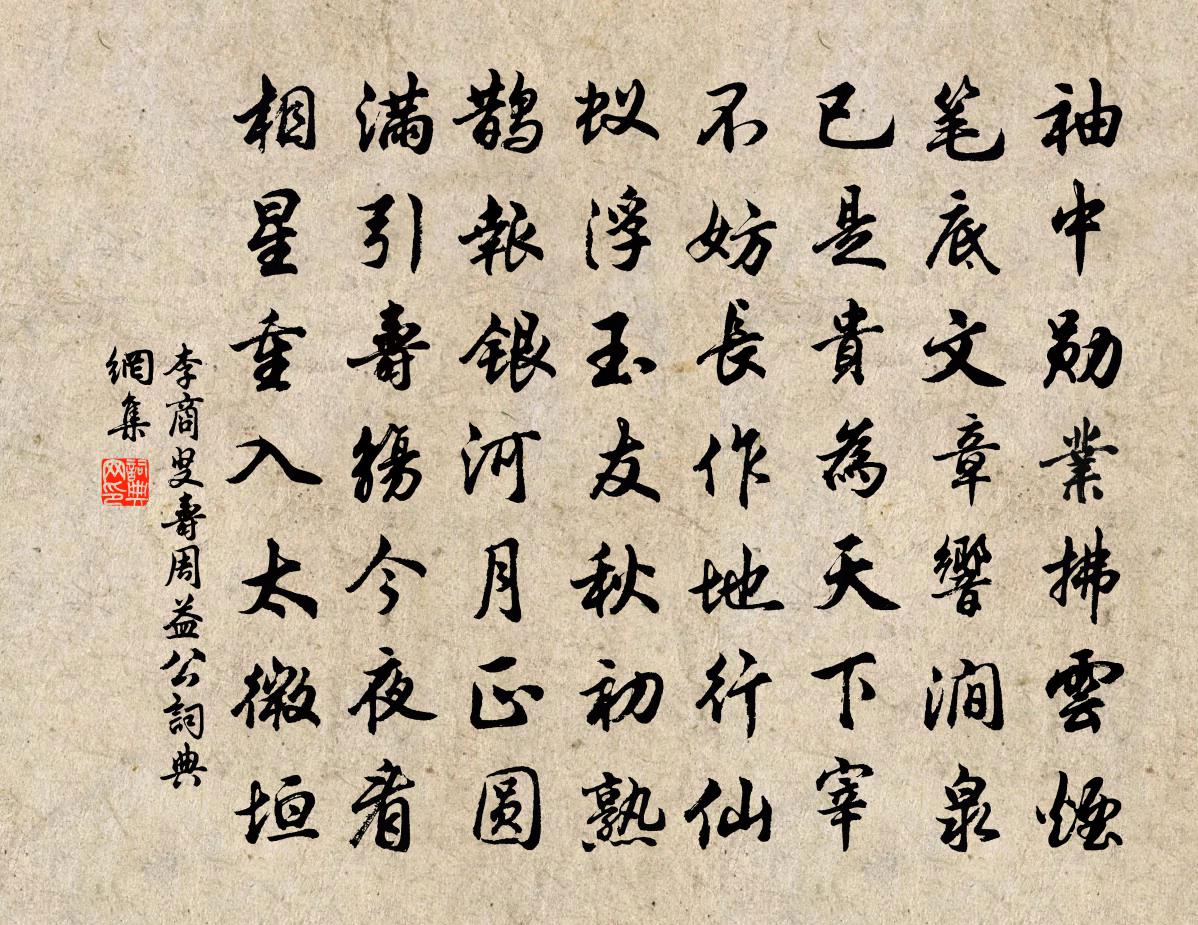 袖中勛業拂雲煙
笔底文章響澗泉
已是貴為天下宰
不妨長作地行仙
蚁浮玉友秋初熟
鹊報銀河月正圆
满引壽觴今夜看
相星重入太微垣
李商叟壽周益公詞典
網集
詞典
网印